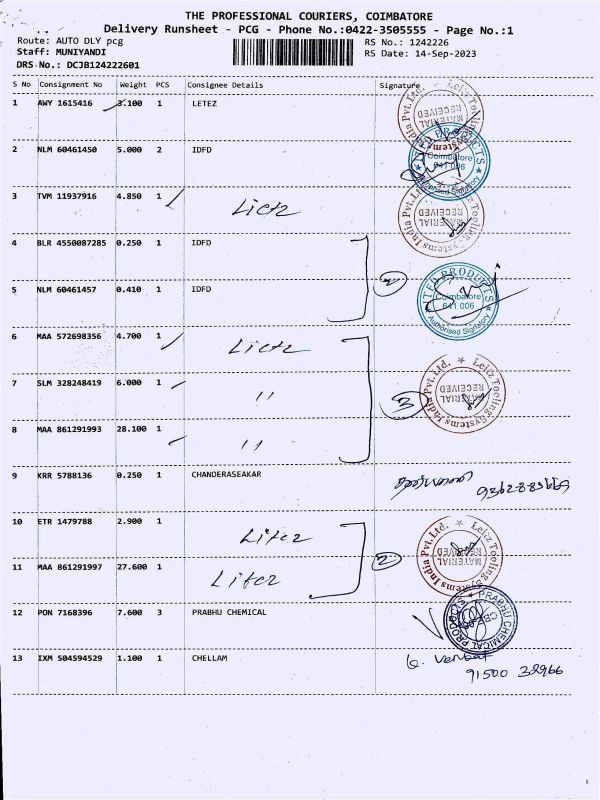 THE PROFESSIONAL COURIERS, COIMBATORE
Delivery Runsheet - PCG - Phone No.:0422-3505555 - Page No.:1
Route: AUTO DLY pcg RS No.: 1242226
Staff: MUNIYANDI RS Date: 14-Sep-2023
DRS No.: DCJB124222601
S No Consignment No Weight PCS Consignee Details Signature
1 AWY 1615416 3.100 1 LETEZ
2 NLM 60461450 5.000 2 IDFD
3 TVM 11937916 4.850 1
4 BLR 4550087285 0.250 1 IDFD
5 NLM 60461457 0.410 1 IDFD
6 MAA 572698356 4.700 1
7 SLM 328248419 6.000 1 "
8 MAA 861291993 28.100 1 "
9 KRR 5788136 0.250 1 CHANDERASEAKAR
10 ETR 1479788 2.900 1
11 MAA 861291997 27.600 1
12 PON 7168396 7.600 3 PRABHU CHEMICAL
13 IXM 504594529 1.100 1 CHELLAM
2
3
2
Leitz Tooling Systems India Pvt. Ltd.
MATERIAL RECEIVED
PRODUCTS
Coimbatore
641 006
Authorised Signatory
Leitz Tooling Systems India Pvt. Ltd.
MATERIAL RECEIVED
PRODUCTS
Coimbatore
641 006
Authorised Signatory
Leitz Tooling Systems India Pvt. Ltd.
MATERIAL RECEIVED
Leitz Tooling Systems India Pvt. Ltd.
MATERIAL RECEIVED
PRABHU CHEMICAL PRODUCTS